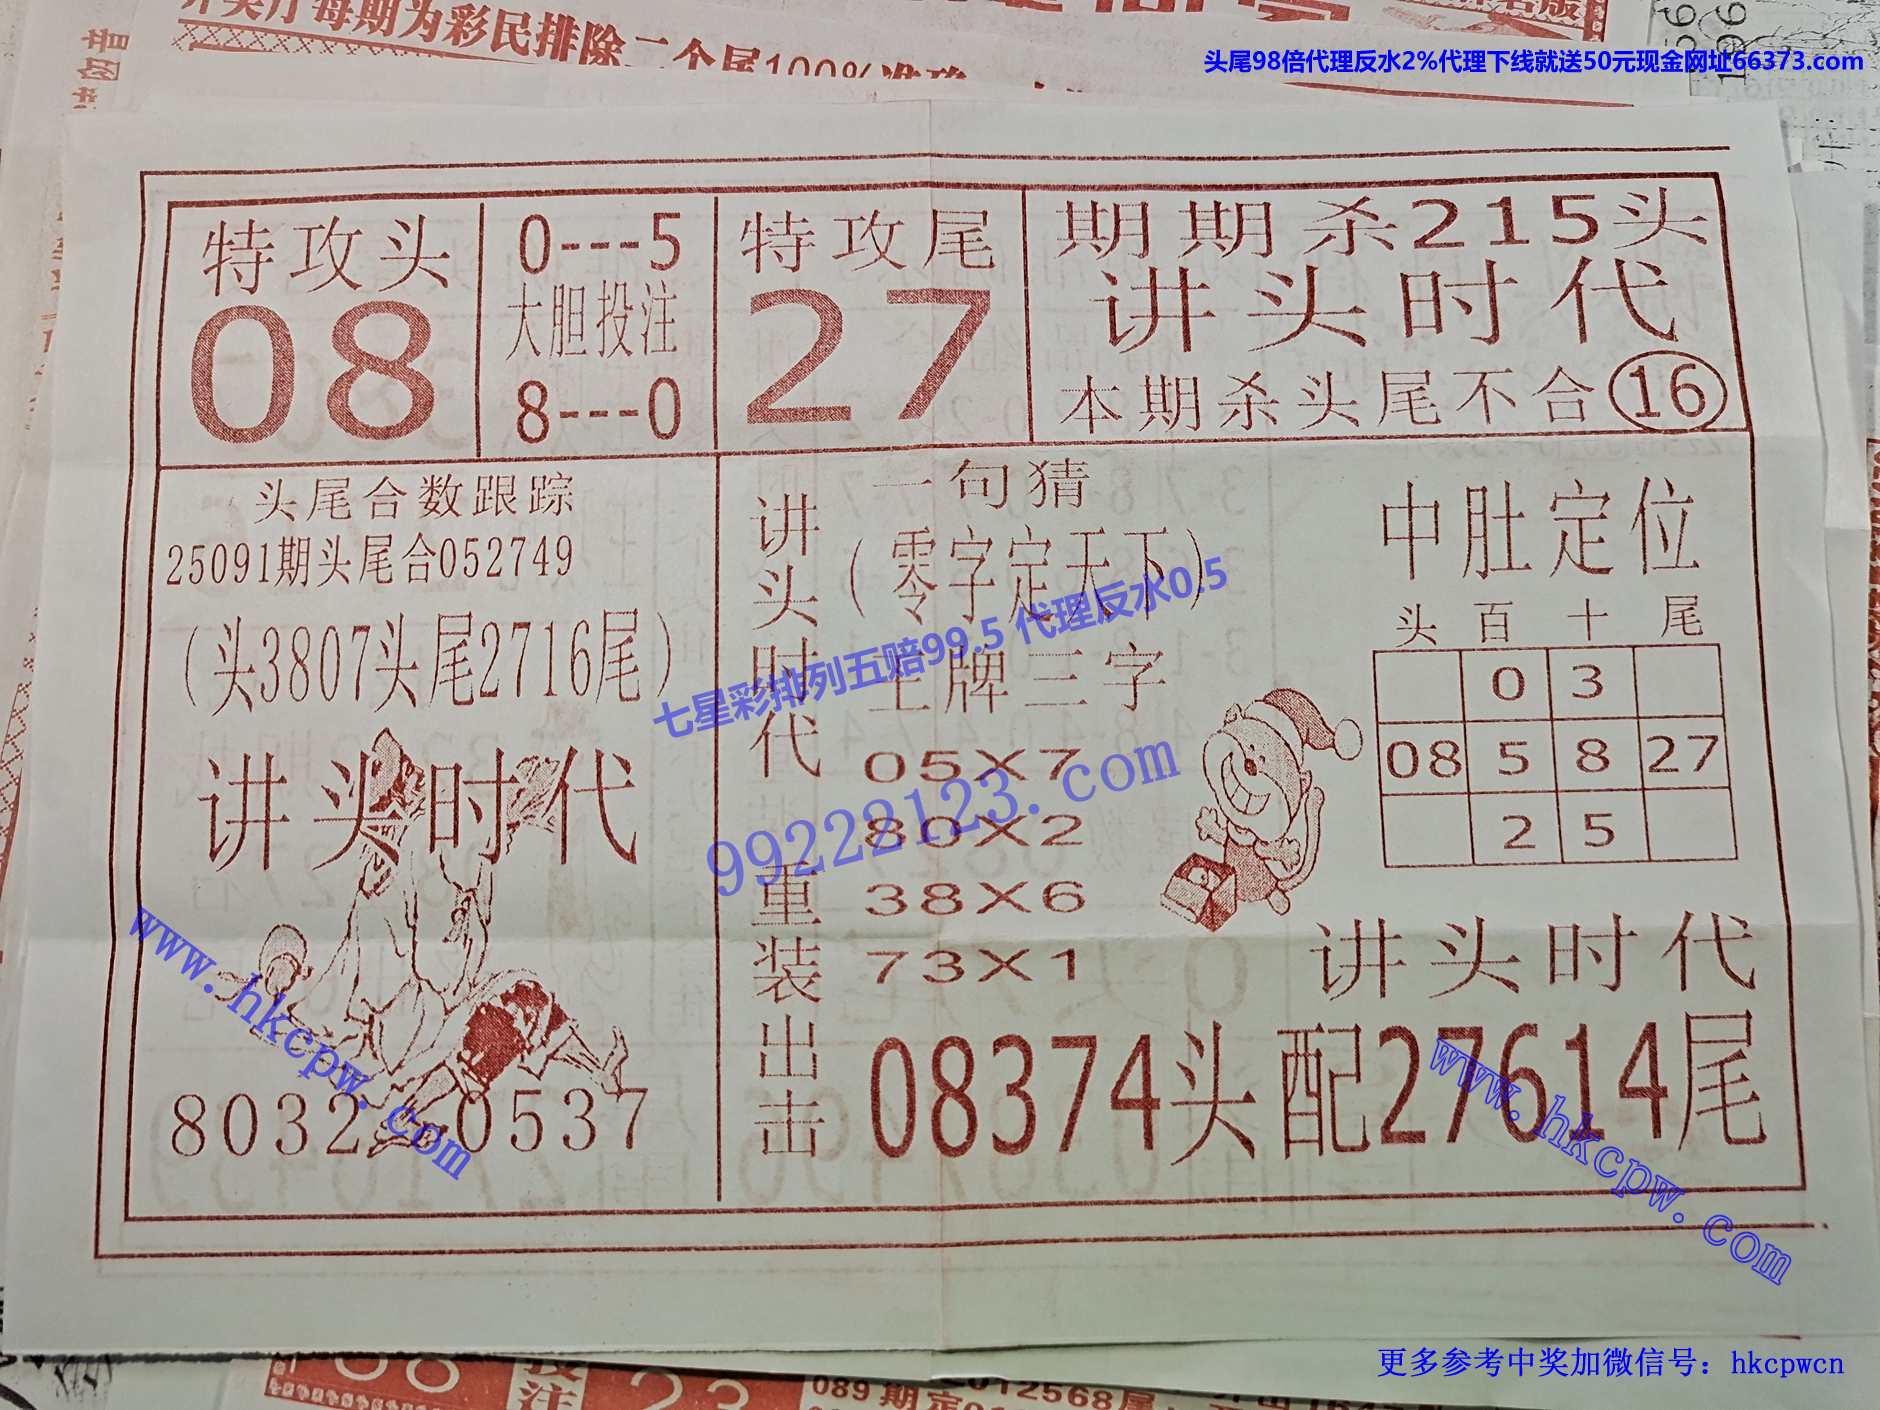 开奖厅每期为彩民排除二个尾100%准确
头尾98倍代理反水2%代理下线就送50元现金网址66373.com
特攻头
08
0---5
大胆投注
8---0
特攻尾
27
期期杀215头
讲头时代
本期杀头尾不合16
头尾合数跟踪
25091期头尾合052749
(头3807头尾2716尾)
讲头时代
8032
0537
讲头时代
重装出击
一句猜
(零字定天下)
王牌三字
05X7
80X2
38X6
73X1
中肚定位
头 百 十 尾
0 3
08 5 8 27
2 5
讲头时代
08374头配27614尾
七星彩排列五赔99.5 代理反水0.5
99222123.com
www.hkcpw.com
www.hkcpw.com
更多参考中奖加微信号：hkcpwcn